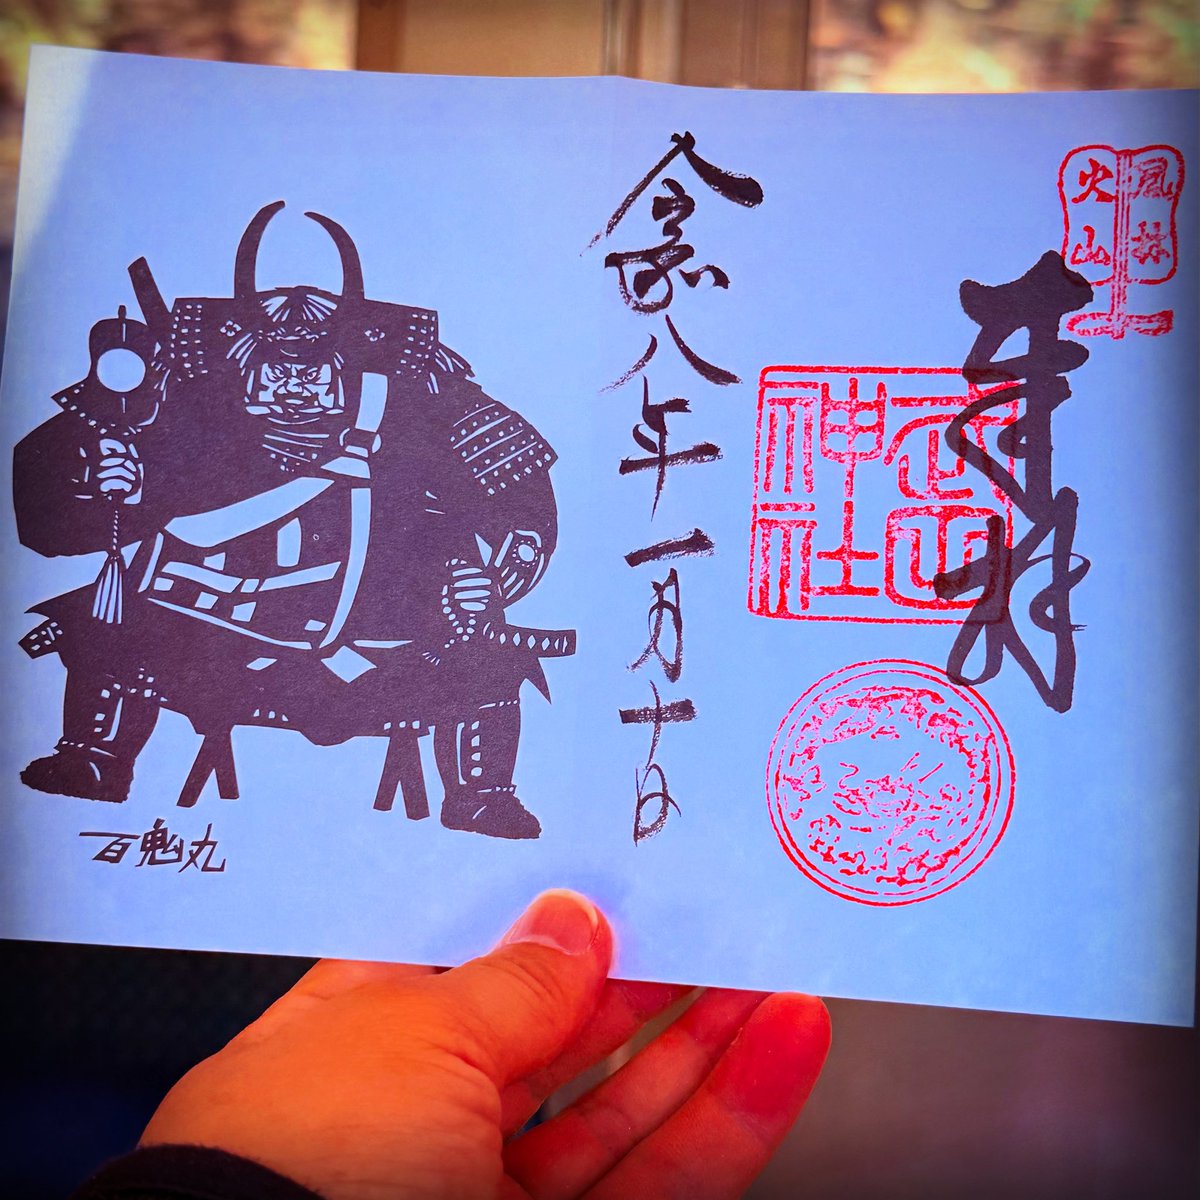 風林
火山
奉拝
武田
神社
令和八年一月十日
百鬼丸